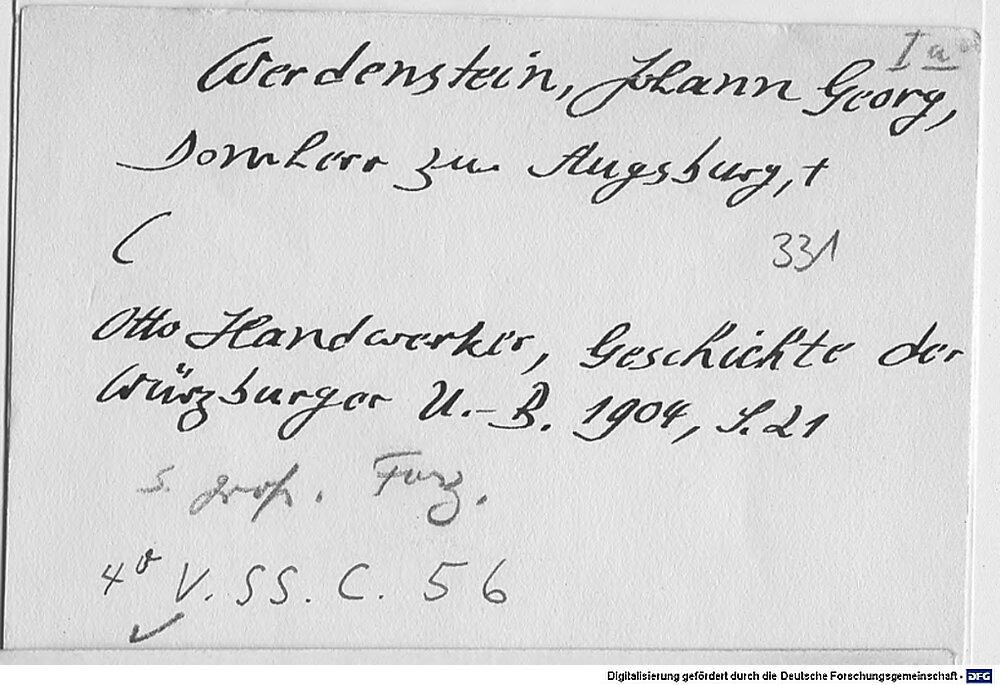 Ia
Werdenstein, Johann Georg,
Domherr zu Augsburg, †
(
331
Otto Handwerker, Geschichte der
Würzburger U.-B. 1904, S. 21
s.
4° V. SS. C. 56
Digitalisierung gefördert durch die Deutsche Forschungsgemeinschaft - DFG